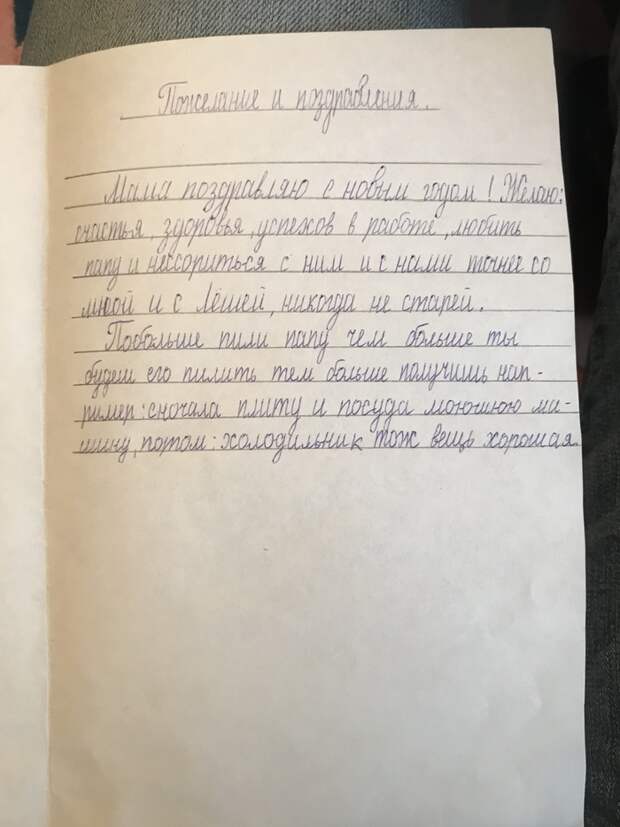 Пожелание и поздравления.
Мама поздравляю с новым годом! Желаю:
счастья, здоровья, успехов в работе, любить
папу и нессориться с ним и с нами точнее со
мной и с Лёшей, никогда не старей.
Побольше пили папу чем больше ты
будеш его пилить тем больше получишь нап-
ример: сночала плиту и посуда моючиюю ма-
шину, потом: холодильник тож вещь хорошая.